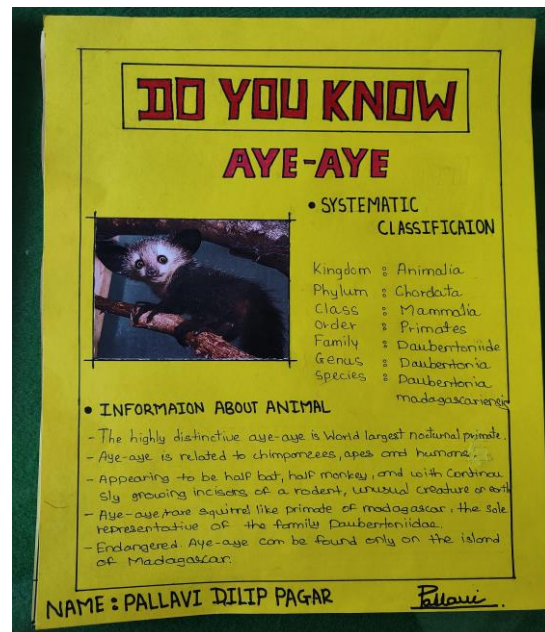 DO YOU KNOW
AYE-AYE
• SYSTEMATIC
CLASSIFICAION
Kingdom : Animalia
Phylum : Chordata
Class : Mammalia
Order : Primates
Family : Daubentoniide
Genus : Daubentonia
Species : Daubentonia
madagascariensis
• INFORMAION ABOUT ANIMAL
- The highly distinctive aye-aye is World largest nocturnal primate.
- Aye-aye is related to chimpanzees, apes and humans.
- Appearing to be half bat, half monkey, and with Continou
sly growing incisors of a rodent, unusual creature on earth
- Aye-aye, rare squirrel like primate of madagascar, the sole
representative of the family Daubentoniidae.
- Endangered. Aye-aye can be found only on the island
of Madagascar.
NAME : PALLAVI DILIP PAGAR
Pallavi